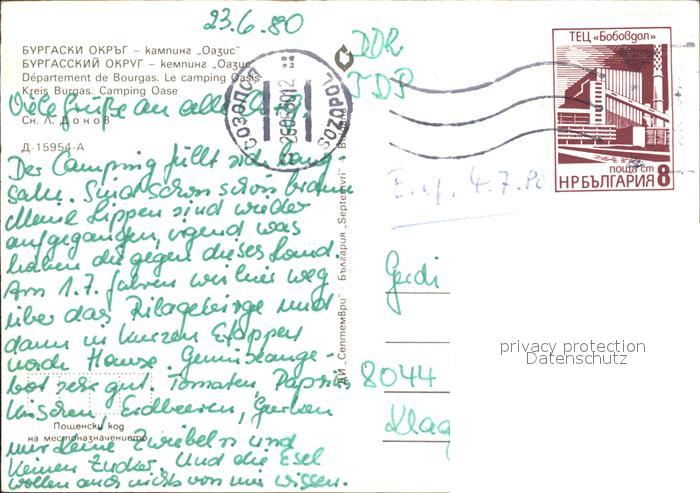 23.6.80
БУРГАСКИ ОКРЪГ – кампинг „Оазис"
БУРГАССКИЙ ОКРУГ – кемпинг „Оазис"
Département de Bourgas. Le camping Oasis
Kreis Burgas. Camping Oase
Viele Grüße an alle
Сн. Л. Донов
Д-15954-А
Der Camping füllt sich lang-
sam. Sind schon schön braun
Meine Lippen sind wieder
aufgegangen, irgend was
haben die gegen dieses Land.
Am 1.7. fahren wir hier weg
über das Rilagebirge und
dann in kurzen Etappen
nach Hause. Gemüseange-
bot sehr gut. Tomaten, Paprika
Kirschen, Erdbeeren, Gurken
nur keine Zwiebeln und
keinen Zucker. Und die Esel
wollen auch nichts von mir wissen.
Пощенски код
на местоназначението
ДИ „Септември" - България "Septemvri" Bulgaria
СОЗОПОЛ
SOZOPOL
DDR
ТЕЦ „Бобовдол"
поща ст
НР БЪЛГАРИЯ 8
4.7.80
Gerdi
8044
Klag
privacy protection
Datenschutz